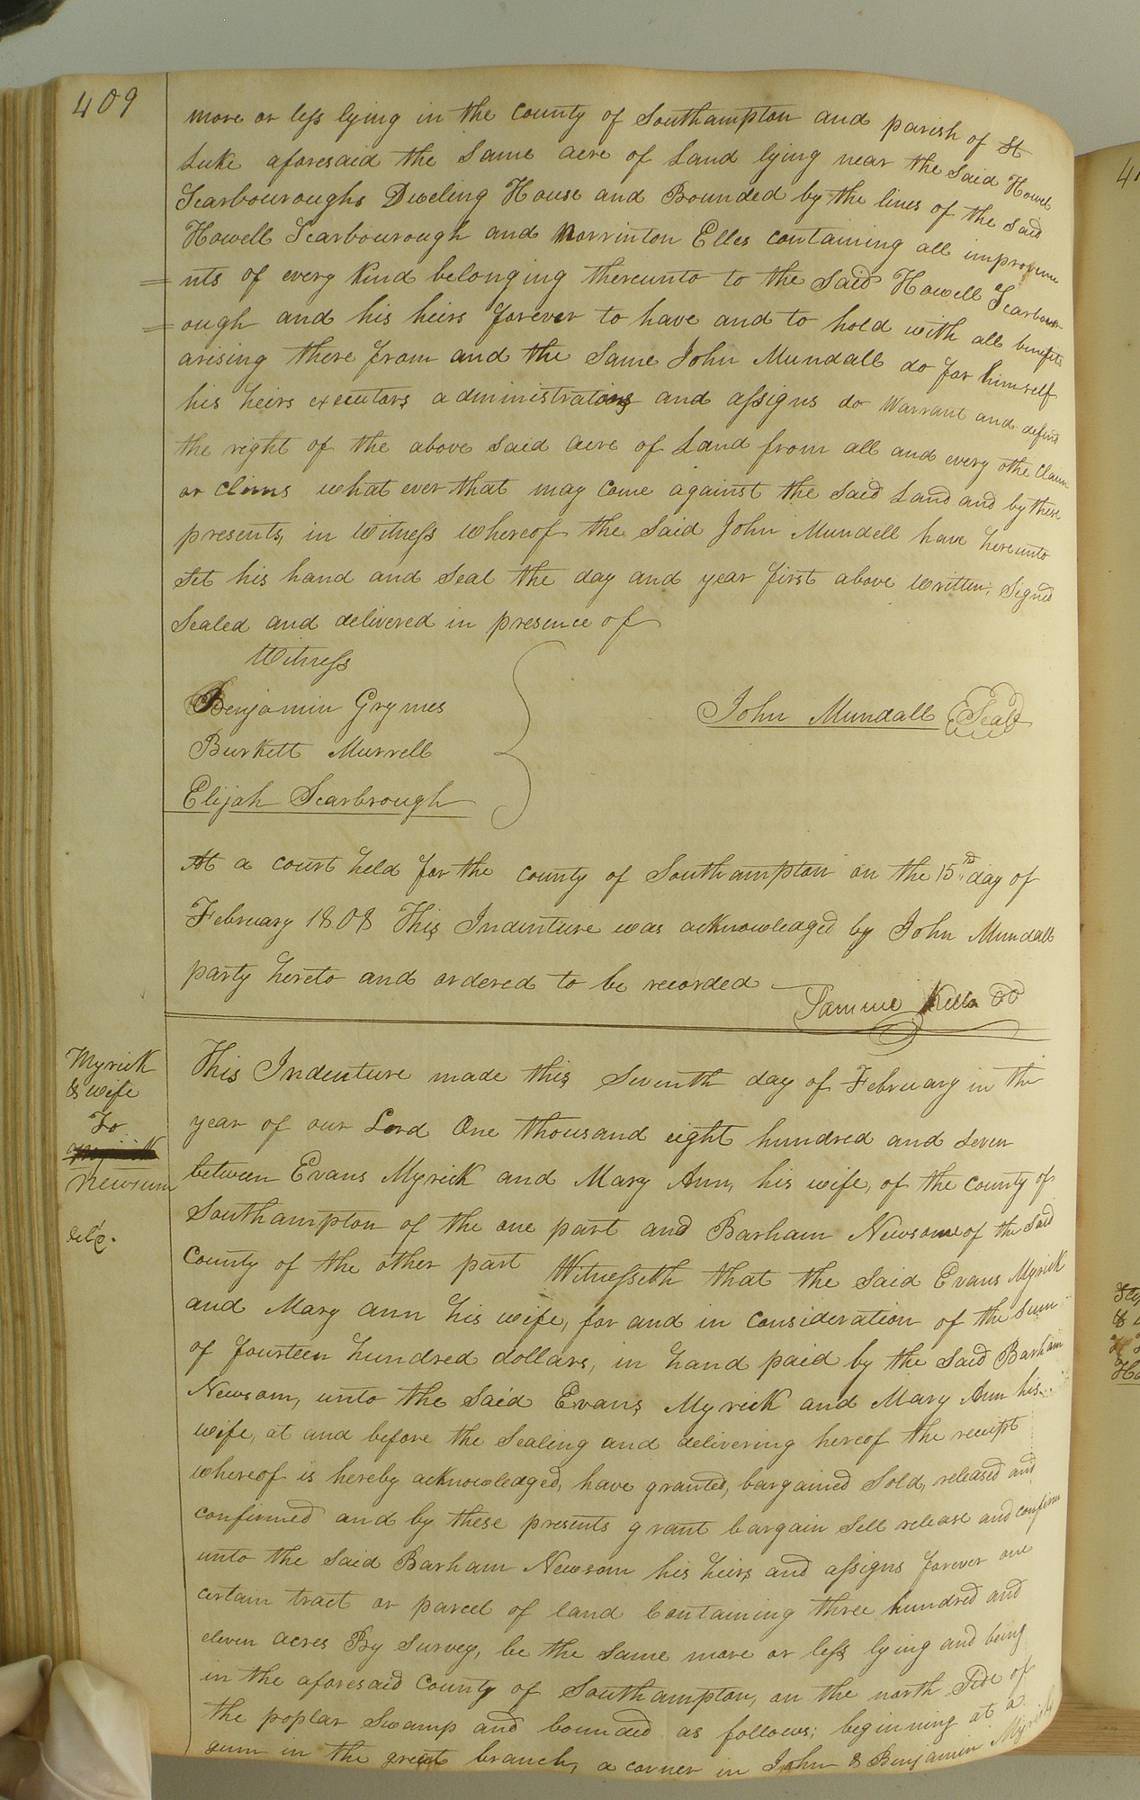 409
more or less lying in the county of Southampton and parish of St
Luke aforesaid the same acre of Land lying near the said Howel
Scarbouroughs Dweling House and Bounded by the lines of the said
Howell Scarbourough and Norrinton Elles containing all improveme
=nts of every kind belonging thereunto to the said Howell Scarbour
=ough and his heirs forever to have and to hold with all benefits
arising there from and the same John Mundall do for himself
his heirs executors administrators and assigns do warrant and defend
the right of the above said acre of Land from all and every othe claim
or clims what ever that may come against the said Land and by these
presents, in Witness whereof the said John Mundell have hereunto
Set his hand and seal the day and year first above written. Signed
Sealed and delivered in presence of
Witness
Benjamin Grymes
Burkett Murrell
Elijah Scarbrough
John Mundall Seal
At a court held for the county of Southampton on the 15th day of
February 1808 This Indenture was acknowledged by John Mundall
party hereto and ordered to be recorded
Samuel Kello CC
Myrick
& wife
To
Newsum
This Indenture made this seventh day of February in the
year of our Lord One thousand eight hundred and seven
between Evans Myrick and Mary Ann, his wife, of the county of
Southampton of the one part and Barham Newsome of the said
County of the other part Witnesseth that the said Evans Myrick
and Mary ann his wife, for and in consideration of the sum
of fourteen hundred dollars, in hand paid by the said Barham
Newsom, unto the said Evans Myrick and Mary Ann his
wife, at and before the sealing and delivering hereof the receipt
whereof is hereby acknowledged, have granted, bargained sold, released and
confirmed and by these presents grant bargain sell release and confirm
unto the said Barham Newsom his heirs and assigns forever one
certain tract or parcel of land containing three hundred and
eleven acres By survey, be the same more or less lying and being
in the aforesaid County of Southampton, on the north side of
the poplar swamp and bounded as follows; beginning at a
gum in the great branch, a corner in John & Benjamin Myricks